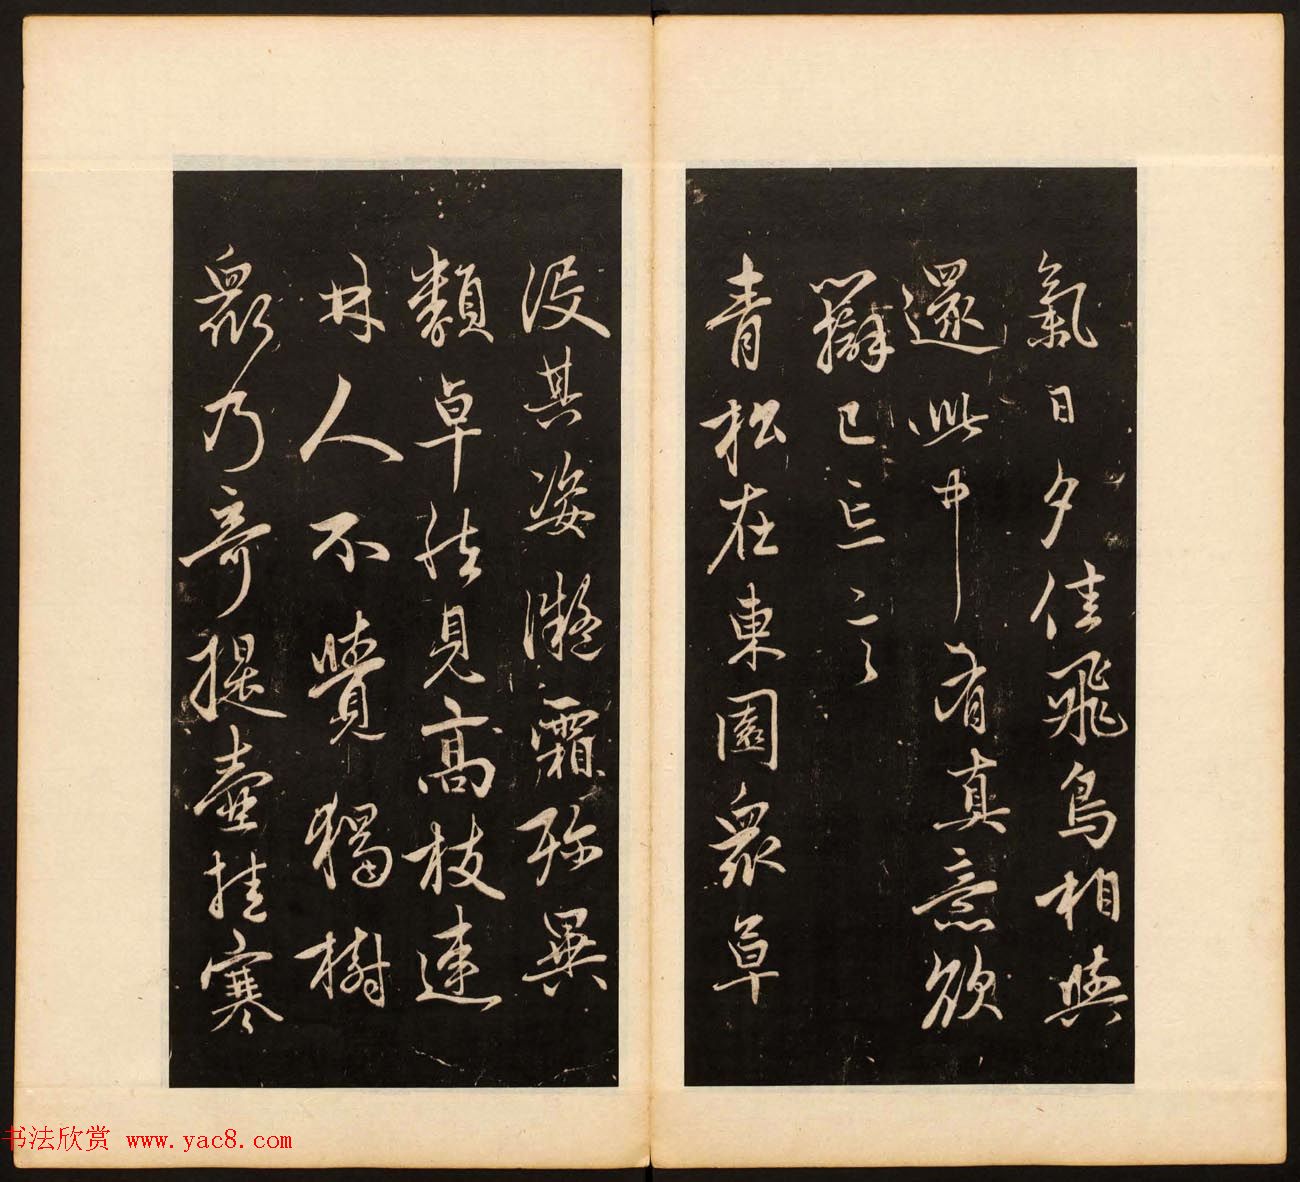 氣日夕佳飛鳥相與
還此中有真意欲
辯已忘言
青松在東園衆草
沒其姿凝霜殄異
類卓然見高枝連
林人不覺獨樹
衆乃奇提壺挂寒
书法欣赏 www.yac8.com